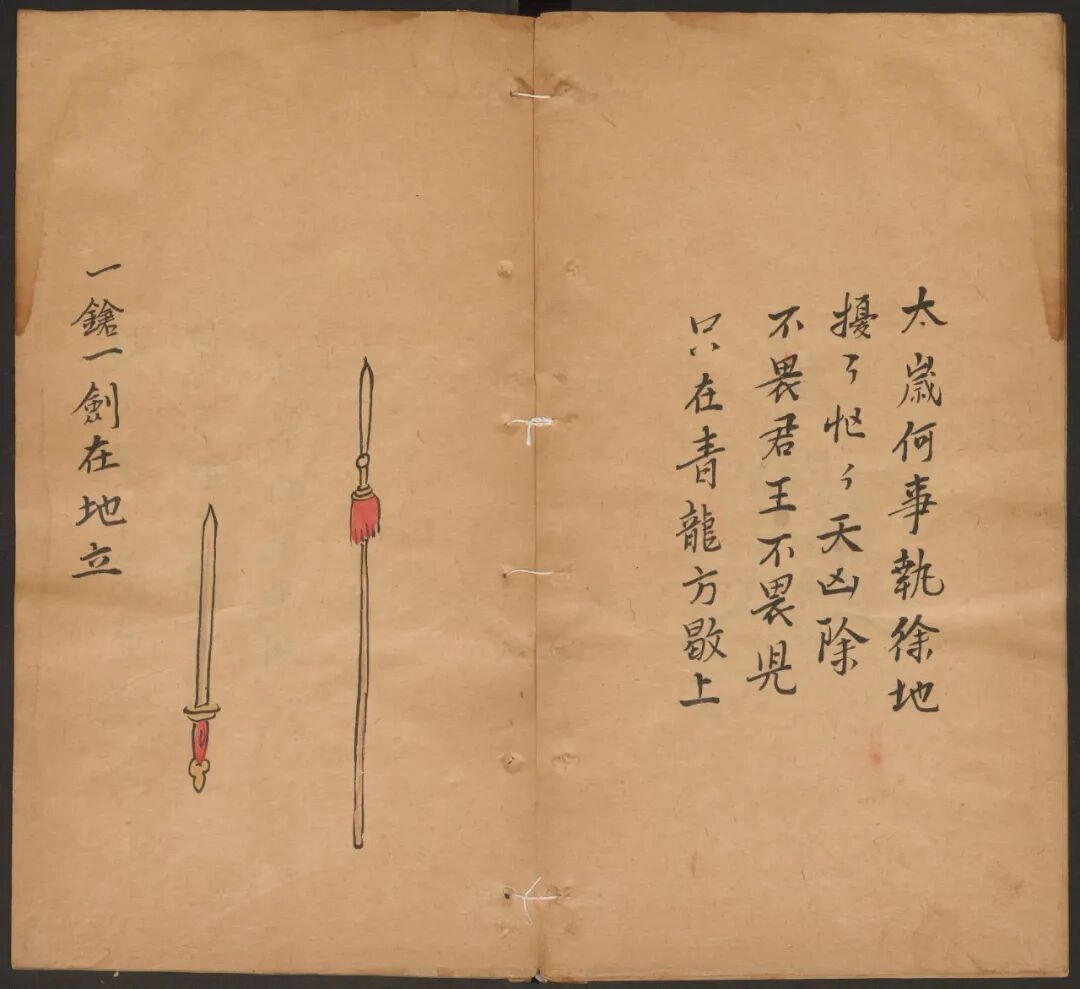 太歲何事執徐地
擾々忙々天凶除
不畏君王不畏兕
只在青龍方歇上
一鎗一劍在地立